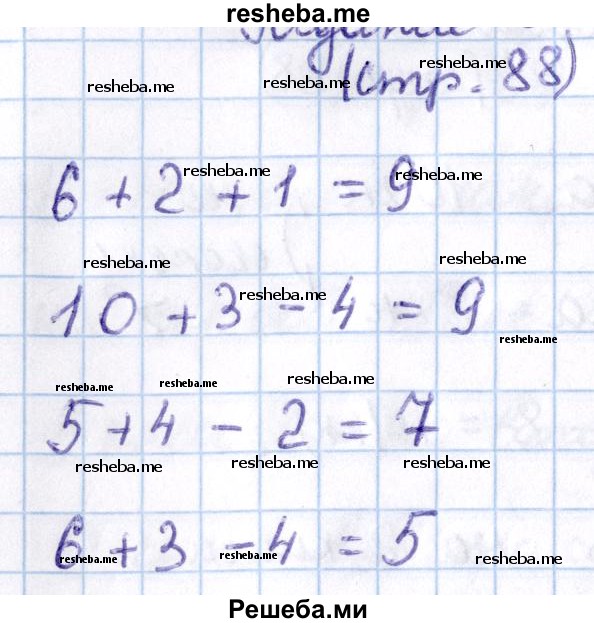 resheba.me
(стр. 88)
resheba.me resheba.me
resheba.me resheba.me
6 + 2 + 1 = 9
resheba.me resheba.me
resheba.me
10 + 3 - 4 = 9
resheba.me
resheba.me resheba.me resheba.me
5 + 4 - 2 = 7
resheba.me resheba.me resheba.me
6 + 3 - 4 = 5
resheba.me resheba.me resheba.me
Решеба.ми